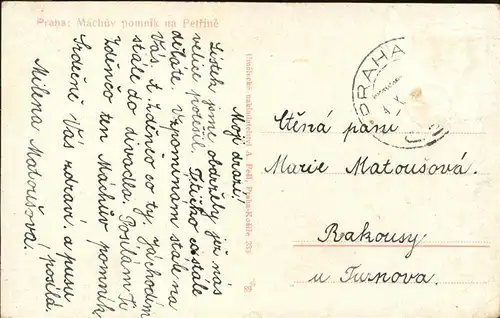 Praha: Máchův pomník na Petříně
Moji drazí!
Lístek jsme obdržely jež nás
velice potěšil. Tetičko co stále
děláte. Vzpomínám stále na
Vás. I Zdenčo co ty. Já chodím
stále do divadla. Posílám Ti
Zdenčo ten Máchův pomník
Srdečně Vás zdraví a pusu
posílá
Milena Matoušova.
Umělecké nakladatelství A. Pešl, Praha-Košíře
89
PRAHA
Ctěná paní
Marie Matoušová
Rakousy
u Turnova.